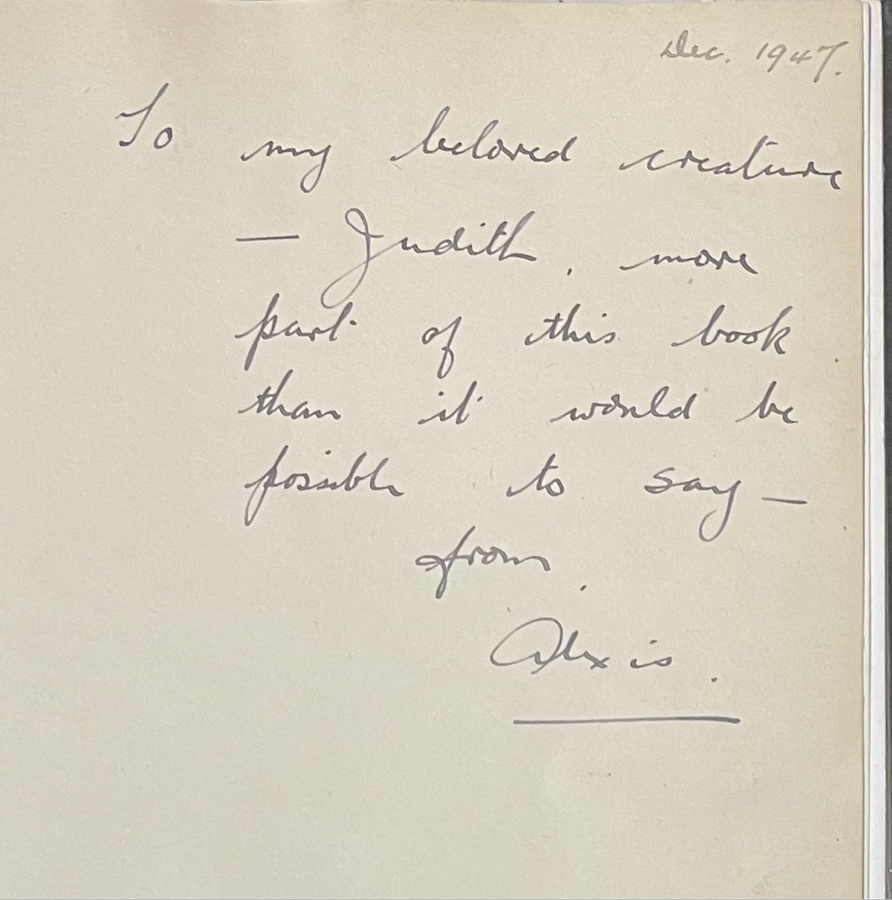 Dec. 1947.
To my beloved creature
— Judith, more
part of this book
than it would be
possible to say —
from
Alexis.